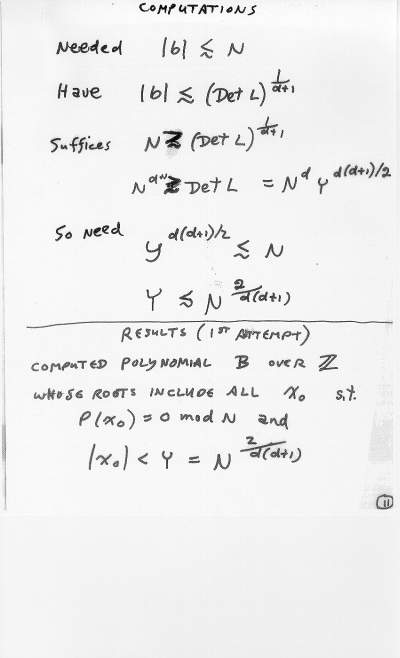 COMPUTATIONS
Needed |b| ≲ N
Have |b| ≲ (Det L)^{1/(d+1)}
Suffices N ≳ (Det L)^{1/(d+1)}
N^{d+1} ≳ Det L = N^d Y^{d(d+1)/2}
So need y^{d(d+1)/2} ≲ N
Y ≲ N^{2/d(d+1)}
RESULTS (1ST ATTEMPT)
COMPUTED POLYNOMIAL B OVER ℤ
WHOSE ROOTS INCLUDE ALL x₀ s.t.
P(x₀) = 0 mod N and
|x₀| < Y = N^{2/d(d+1)}
11